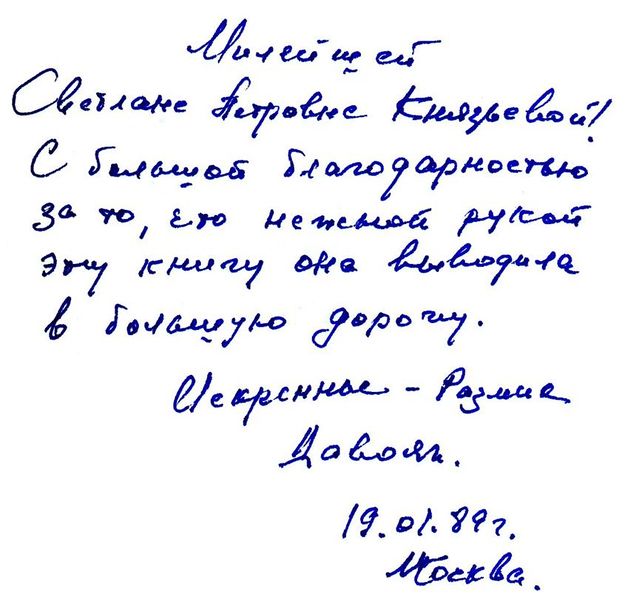 Милейшей
Светлане Петровне Князьевой!
С большой благодарностью
за то, что нежной рукой
эту книгу она выводила
в большую дорогу.
Искренне – Размик
Давоян.
19.01.89г.
Москва.